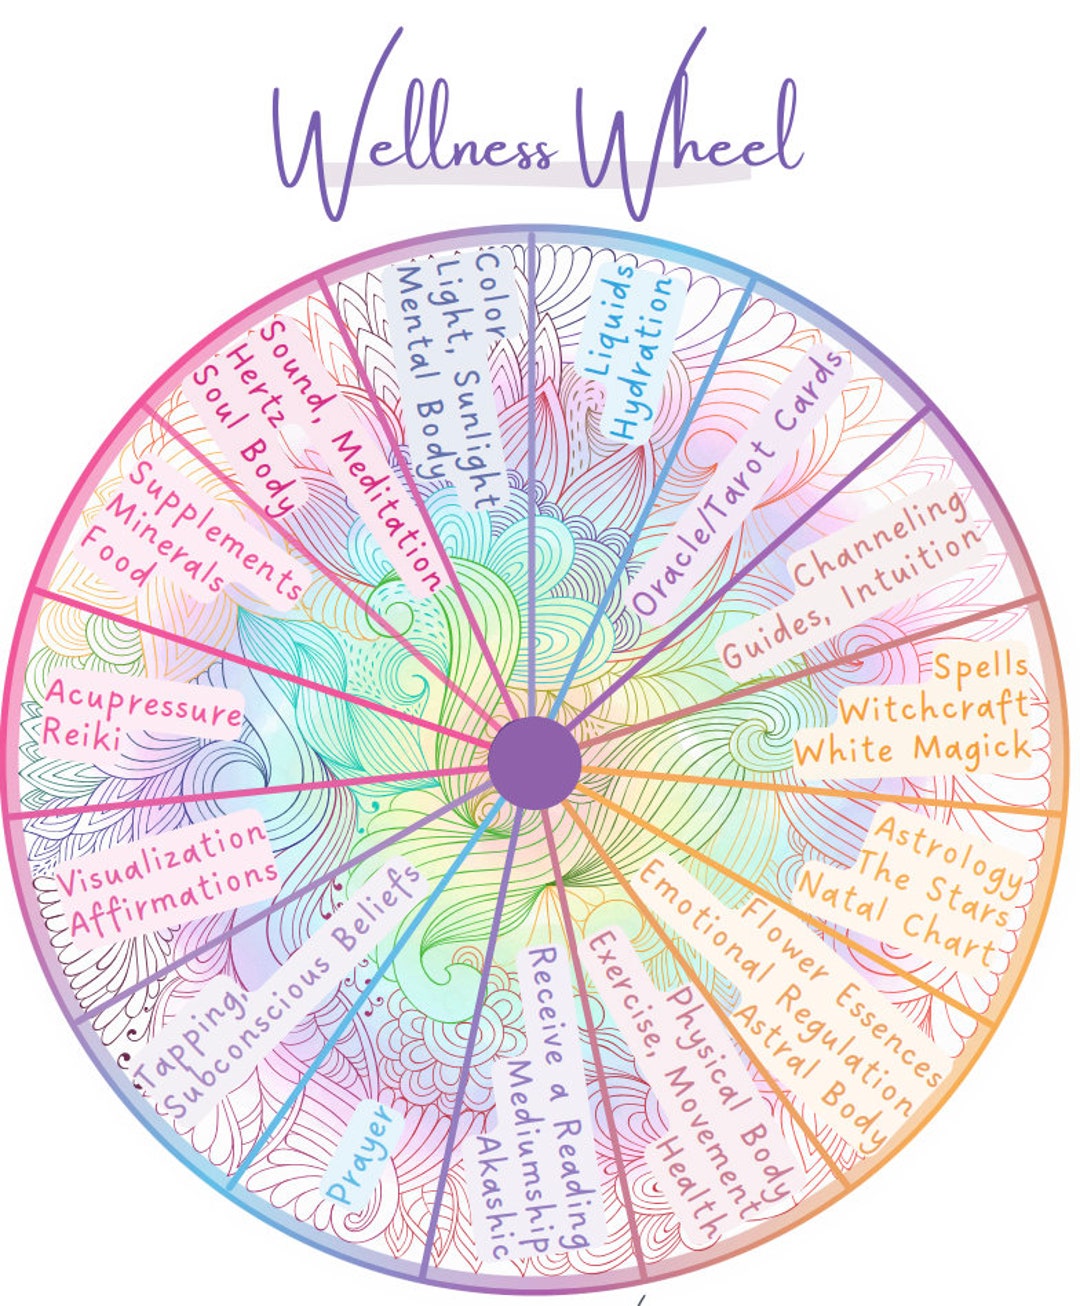 Wellness Wheel
Liquids
Hydration
Oracle/Tarot Cards
Channeling
Guides, Intuition
Spells
Witchcraft
White Magick
Astrology
The Stars
Natal Chart
Flower Essences
Emotional Regulation
Astral Body
Physical Body
Exercise, Movement
Health
Receive a Reading
Mediumship
Akashic
Prayer
Tapping,
Subconscious Beliefs
Visualization
Affirmations
Acupressure
Reiki
Supplements
Minerals
Food
Sound, Meditation
Hertz
Soul Body
Color
Light, Sunlight
Mental Body